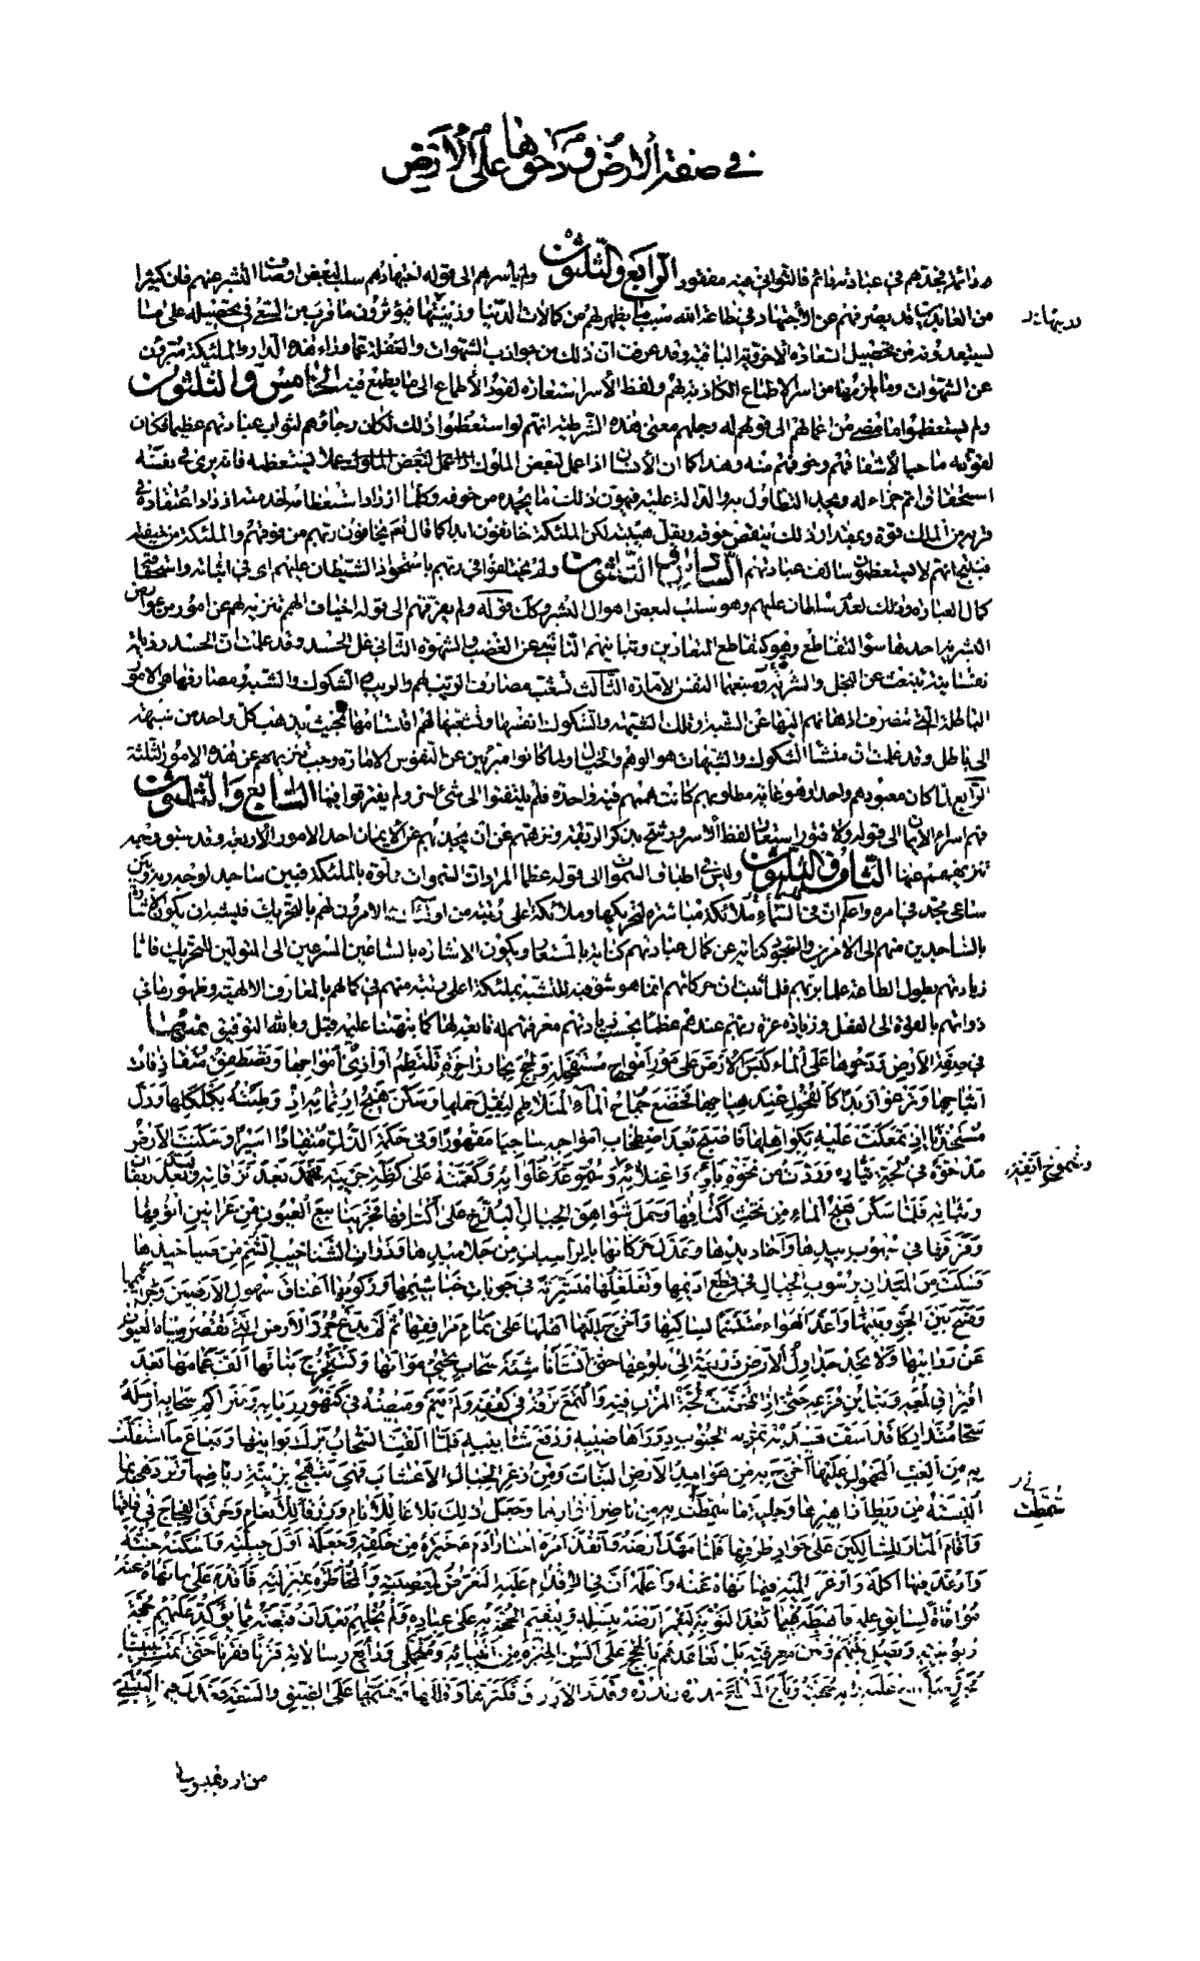 في صفة الارض ودحوها على الارض
دائما تجدهم في عبادته قائم فالتواني فيه مفقود الرابع والثلثون ولم ياسرهم الى قوله اجتهادهم سلب لبعض اوصاف البشر عنهم فان كثيرا
من العابدين قد يصرفهم عن الاجتهاد في طاعة الله سبب ما يظهر لهم من كمالات الدنيا وزينتها فيؤثرون ما قرب من السعي في تحصيله على ما
يستبعدونه من تحصيل السعادة الاخروية الباقية وقد عرفت ان ذلك من جواذب الشهوات والغفلة عما وراء هذه الدار والملئكة مبرؤن
عن الشهوات وما يلزمها من اسر الاطماع الكاذبة لهم ولفظ الاسر استعارة لقود الاطماع الى ما يطمع فيه الخامس والثلثون
ولم يستعظموا ما مضى من اعمالهم الى قوله وجلهم معنى هذه الشرطية انهم لو استعظموا ذلك لكان رجاؤهم لثواب عبادتهم عظيما فكان
لقوته ماحيا لاشفاقهم وخوفهم منه وهذا كما ان الانسان اذا عمل لبعض الملوك عملا يستعظمه فانه يرى في نفسه
استحقاق اتم جزاء له ويجد التطاول به والدالة عليه فيهون ذلك ما يجده من خوفه وكلما ازداد استعظامه لخدمته ازداد اعتقاده في
قربه من الملك قوة وبمقدار ذلك ينقص خوفه ويقل هيبته لكن الملئكة خائفون ابدا كما قال تعم يخافون ربهم من فوقهم والملئكة من خيفته
فينتج انهم لا يستعظمون سالف عبادتهم السادس والثلثون ولم يختلفوا في ربهم باستحواذ الشيطان عليهم اى في اثباته واستحقاق
كمال العبادة وذلك لعدم سلطان عليهم وهو سلب لبعض احوال البشر وكك قوله ولم يفرقهم الى قوله اخياف الهمم تنزيه لهم عن امور من عوارض
البشرية احدها سوء التقاطع وهو كتقاطع المتعادين وتباينهم الناشي عن الغضب والشهوة الثاني غل الحسد وقد علمت ان الحسد رذيلة
نفسانية تنبعث عن البخل والشره ومنبعهما النفس الامارة الثالث تشعب مصارف الريب لهم والريب الشكوك والشبه ومصارفها هي الامور
الباطلة التي تنصرف اذهانهم اليها عن الشبه وتلك الشبهة والشكوك انفسها وتشعبها لهم اقتسامها بحيث يذهب كل واحد من شبهة
الى باطل وقد علمت ان منشأ الشكوك والشبهات هو الوهم والخيال ولما كانوا مبرئين عن النفوس الامارة وجب تنزيههم عن هذه الامور الثلثة
الرابع لما كان معبودهم واحدا وهو غاية مطلوبهم كانت هممهم فيه واحدة فلم يلتفتوا الى شيء اخر ولم يفترقوا فيها السابع والثلثون
فهم اسراء الايمان الى قوله ولا فتور استعار لفظ الاسر ورشح بذكر الربقة ونزههم عن ان يجذبهم عن الايمان احد الامور الاربعة وقد سبق وجه
تنزيههم عنها الثامن والثلثون وليس في اطباق السموات الى قوله عظما المراد ان السموات مملوة بالملئكة فبين ساجد لوجه ربه وبين
ساع مجد في امره واعلم ان في السماء ملائكة مباشرة لتحريكها وملائكة اعلى رتبة من اولئك هم الامرون لهم بالتحريك فليشبه ان يكون الاشارة
بالساجدين منهم الى الامرين والسجود كناية عن كمال عبادتهم كناية بالمستعار ويكون الاشارة بالساعين المسرعين الى المتولين للتحريك فاما
زيادتهم بطول الطاعة علما بربهم فلما ثبت ان حركاتهم انما هو شوقية للتشبه بملئكة اعلى رتبة منهم في كمالهم بالمعارف الالهية وظهور ما في
ذواتهم بالقوة الى الفعل وزيادة عزة ربهم عندهم عظما بحسب زيادتهم معرفتهم له تابعة لها كما نبهنا عليه قبل وبالله التوفيق منها
في صفة الارض ودحوها على الماء كبس الارض على مور امواج مستفحلة ولجج بحار زاخرة تلتطم اواذي امواجها وتصطفق متقاذفات
اثباجها وترغو زبدا كالفحول عند هياجها فخضع جماح الماء المتلاطم لثقل حملها وسكن هيج ارتمائه اذ وطئته بكلكلها وذل
مستخذيا اذ تمعكت عليه بكواهلها فاصبح بعد اصطخاب امواجه ساجيا مقهورا وفي حكمة الذل منقادا اسيرا وسكنت الارض
مدحوة في لجة تياره وردت من نخوة بأوه واعتلائه وسمو غلوائه وكعمته على كظة جريته فهمد بعد نزقاته وبعد زيفان
وثباته فلما سكن هيج الماء من تحت اكنافها وحمل شواهق الجبال البذخ على اكتافها فجر ينابيع العيون من عرانين انوفها
وفرقها في سهوب بيدها واخاديدها وعدل حركاتها بالراسيات من جلاميدها وذوات الشناخيب الشم من صياخيدها
فسكنت من الميدان برسوب الجبال في قطع اديمها وتغلغلها متسربة في جوبات خياشيمها وركوبها اعناق سهول الارضين وجراثيمها
وفسح بين الجو وبينها واعد الهواء متنسما لساكنها واخرج اليها اهلها على تمام مرافقها ثم لم يدع جرز الارض التي تقصر مياه العيون
عن روابيها ولا يجد جداول الارض ذريعة الى بلوغها حتى انشأ ناشئة سحاب يحيي مواتها ويستخرج نباتها الف غمامها بعد
افتراق لمعه وتباين قزعه حتى اذا تمخضت لجة المزن فيه والتمع برقه في كففه ولم ينم وميضه في كنهور ربابه ومتراكم سحابه ارسله
سحا متداركا قد اسف هيدبه تمريه الجنوب درر اهاضيبه ودفع شآبيبه فلما القت السحاب برك بوانيها وبعاع ما استقلت
به من العبء المحمول عليها اخرج به من هوامد الارض النبات ومن زعر الجبال الاعشاب فهي تبهج بزينة رياضها وتزدهي بما
البسته من ريط ازاهيرها وحلية ما سمطت به من ناضر انوارها وجعل ذلك بلاغا للانام ورزقا للانعام وخرق الفجاج في آفاقها
واقام المنار للسالكين على جواد طرقها فلما مهد ارضه وانفذ امره اختار ادم خيرة من خلقه وجعله اول جبلته واسكنه جنته
وارغد فيها اكله واوعز اليه فيما نهاه عنه واعلمه ان في الاقدام عليه التعرض لمعصيته والمخاطرة بمنزلته فاقدم على ما نهاه عنه
موافاة لسابق علمه فاهبطه بعد التوبة ليعمر ارضه بنسله وليقيم الحجة به على عباده ولم يخلهم بعد ان قبضه مما يؤكد عليهم حجة
ربوبيته ويصل بينهم وبين معرفته بل تعاهدهم بالحجج على السن الخيرة من انبيائه ومتحملي ودائع رسالاته قرنا فقرنا حتى تمت بنبينا
محمد صلى الله عليه واله حجته وبلغ المقطع عذره ونذره وقدر الارزاق فكثرها وقللها وقسمها على الضيق والسعة فعدل فيها ليبتلي
وشموخ انفه
سمطت
من اراد بميسورها